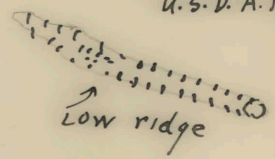 U.S.D.A.
Low ridge